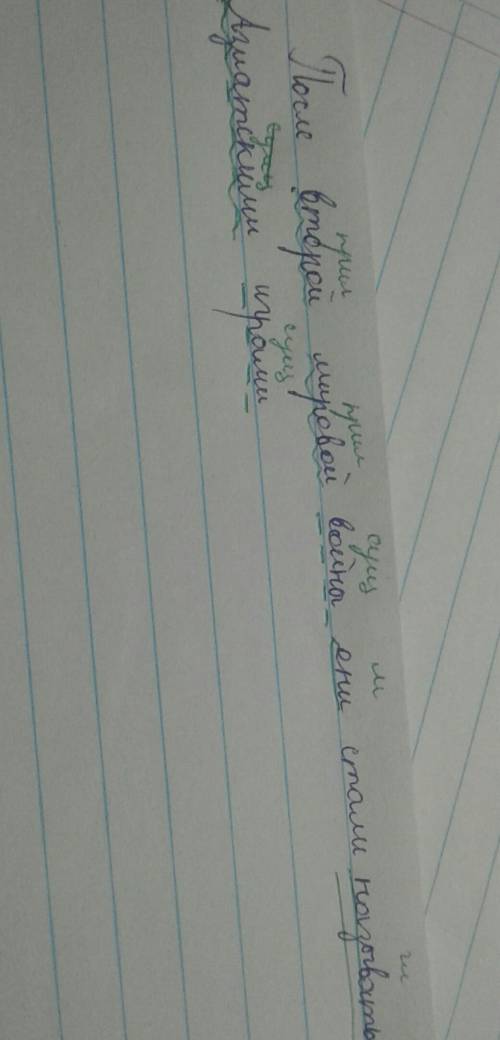 прил прил сущ м гл
После второй мировой войны они стали называть
сущ сущ
Азиатскими играми